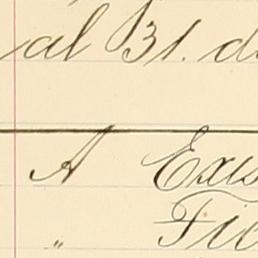 al 31. d
A Exis
" Fie